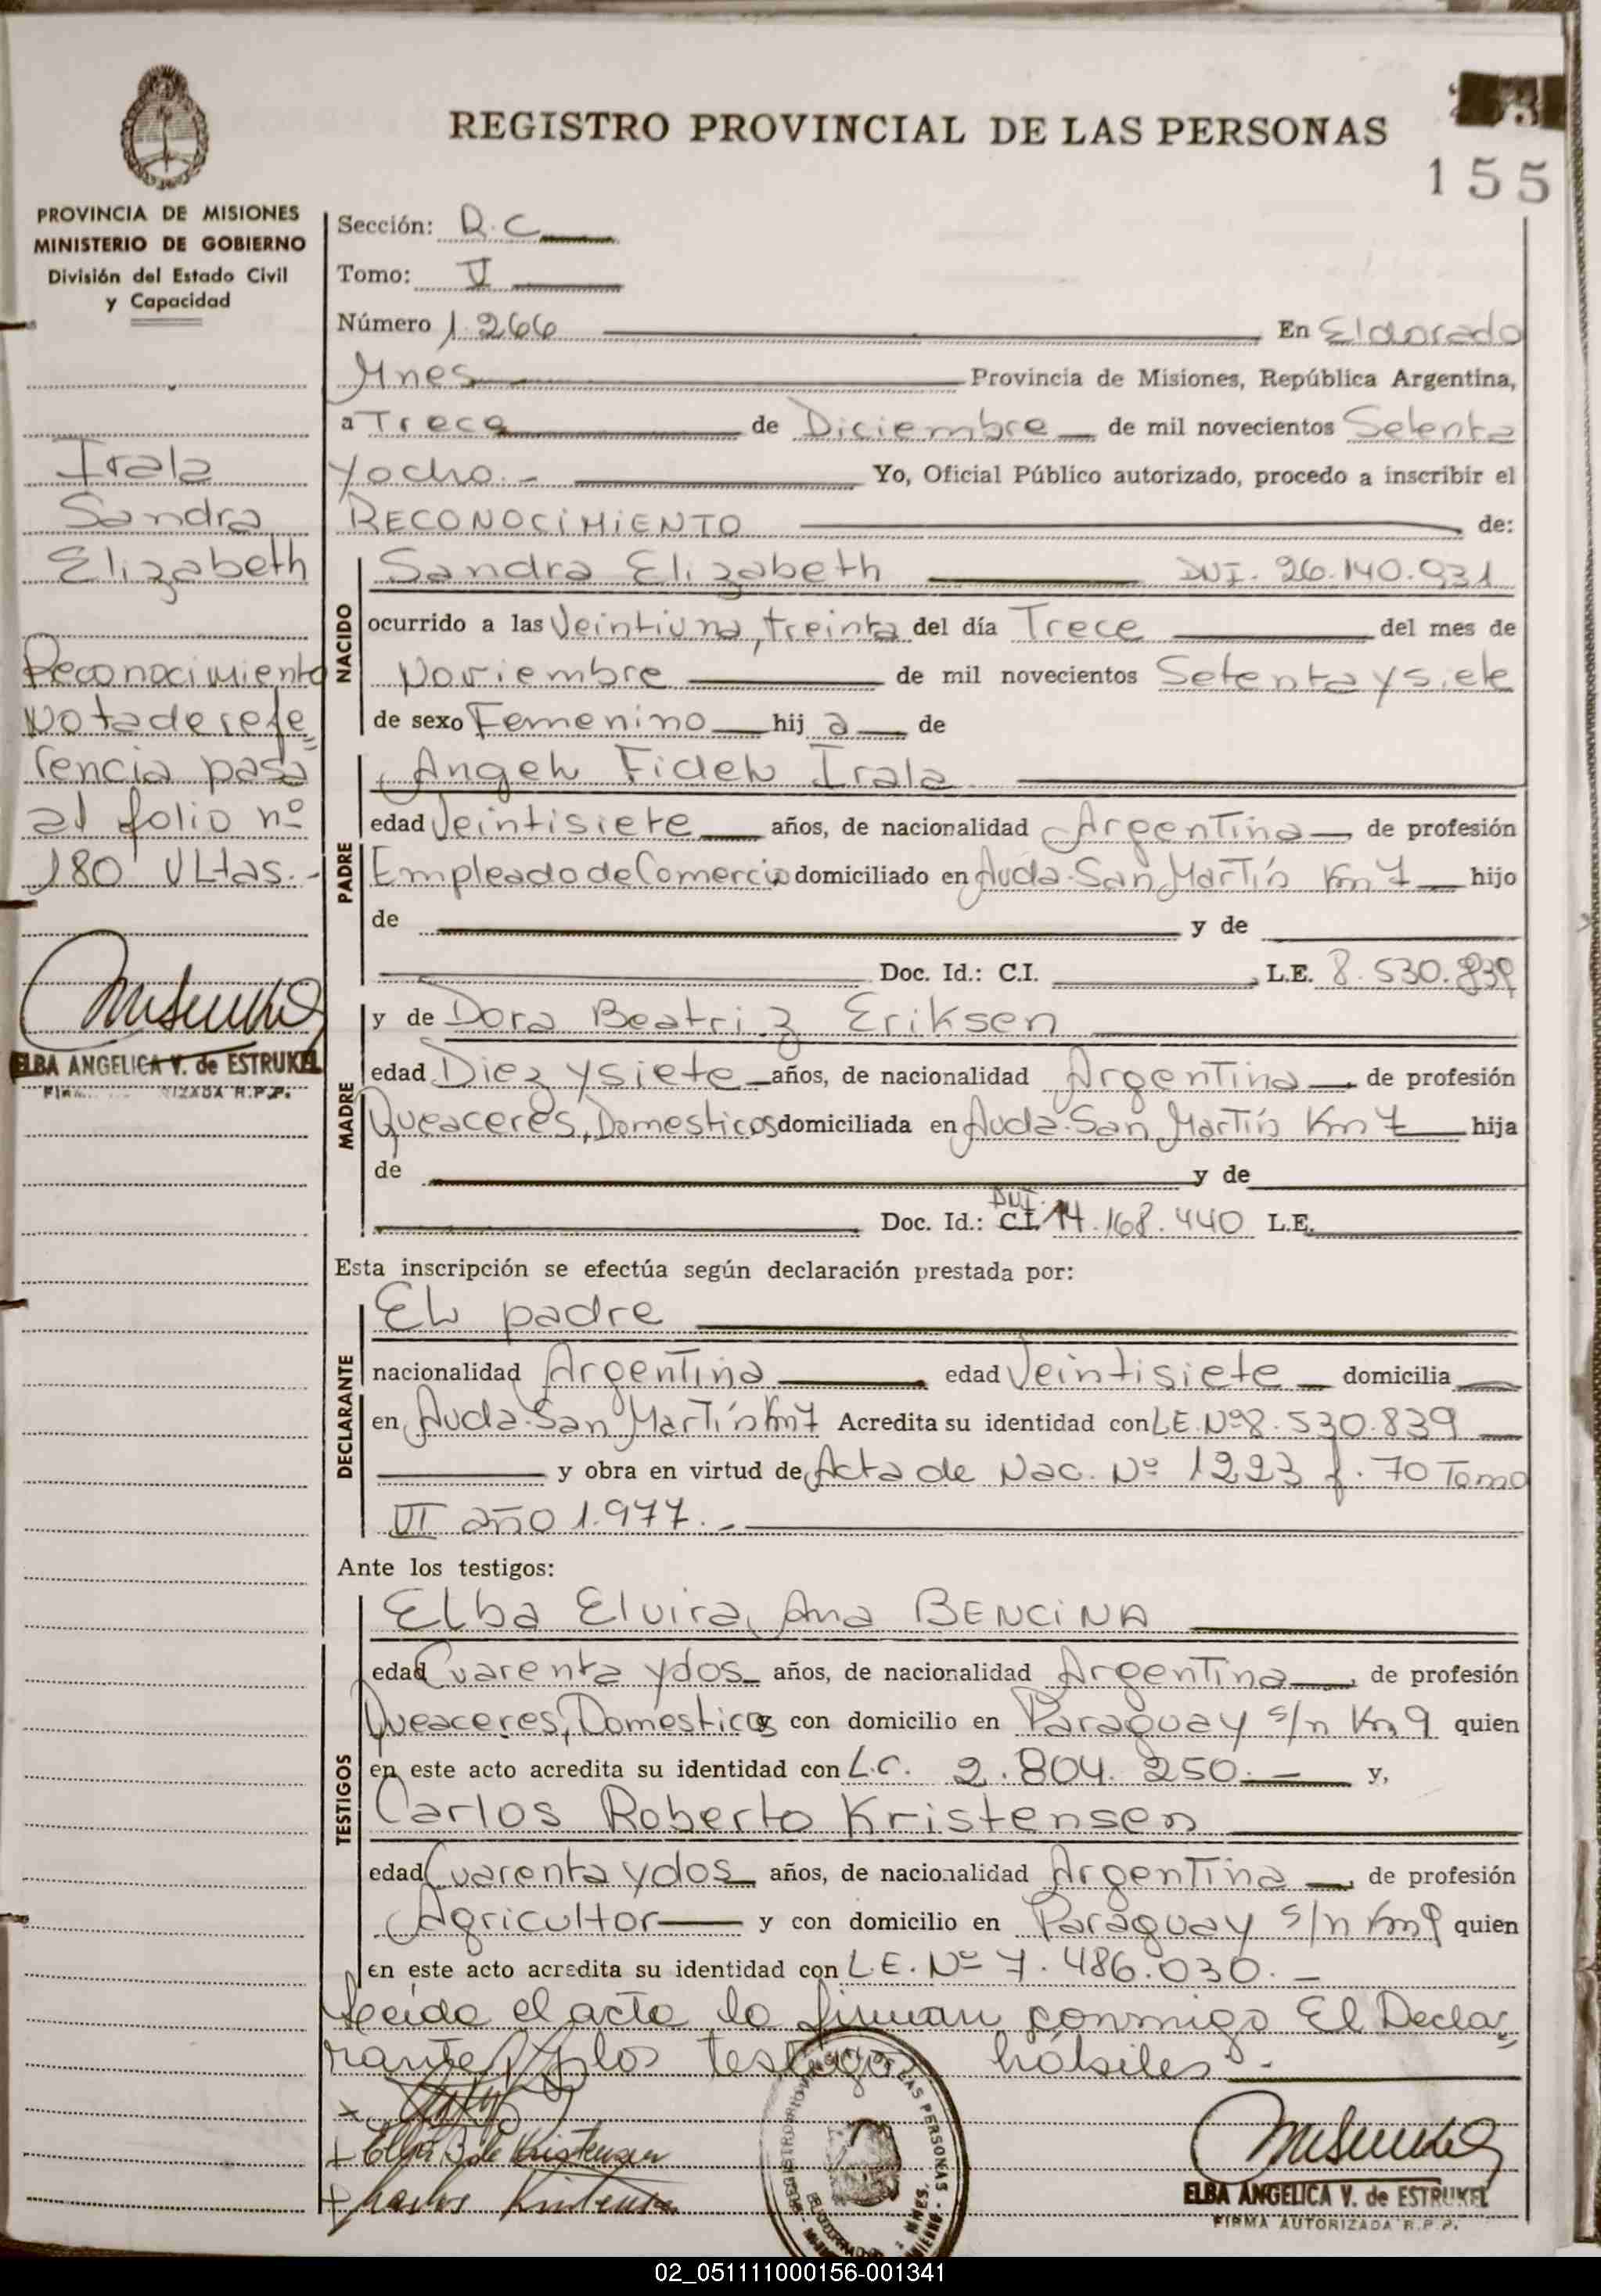 REGISTRO PROVINCIAL DE LAS PERSONAS
155
PROVINCIA DE MISIONES
MINISTERIO DE GOBIERNO
División del Estado Civil
y Capacidad
Irala
Sandra
Elizabeth
Reconocimiento
Nota de refe
rencia pasa
al folio nº
180 Vltas.-
ELBA ANGELICA V. de ESTRUKEL
Sección: R.C
Tomo: V
Número 1.266 En Eldorado
Mnes Provincia de Misiones, República Argentina,
a Trece de Diciembre de mil novecientos Setenta
y ocho.- Yo, Oficial Público autorizado, procedo a inscribir el
RECONOCIMIENTO de:
NACIDO
Sandra Elizabeth DNI. 26.140.931
ocurrido a las Veintiuna, treinta del día Trece del mes de
Noviembre de mil novecientos Setenta y siete
de sexo Femenino hij a de
PADRE
Angel Fidel Irala
edad Veintisiete años, de nacionalidad Argentina de profesión
Empleado de Comercio domiciliado en Avda. San Martín Km 7 hijo
de y de
Doc. Id.: C.I. L.E. 8.530.839
MADRE
y de Dora Beatriz Eriksen
edad Diez y siete años, de nacionalidad Argentina de profesión
Queaceres, Domesticos domiciliada en Avda. San Martín Km 7 hija
de y de
DNI.
Doc. Id.: C.I. 14.168.440 L.E.
Esta inscripción se efectúa según declaración prestada por:
DECLARANTE
El padre
nacionalidad Argentina edad Veintisiete domicilia
en Avda. San Martín Km 7 Acredita su identidad con L.E. Nº 8.530.839
y obra en virtud de Acta de Nac. Nº 1223 f. 70 Tomo
VI año 1.977.-
Ante los testigos:
TESTIGOS
Elba Elvira Ana BENCINA
edad Cuarenta y dos años, de nacionalidad Argentina de profesión
Queaceres, Domesticos con domicilio en Paraguay s/n Km 9 quien
en este acto acredita su identidad con L.C. 2.804.250.- y,
Carlos Roberto Kristensen
edad Cuarenta y dos años, de nacionalidad Argentina de profesión
Agricultor y con domicilio en Paraguay s/n Km 9 quien
en este acto acredita su identidad con L.E. Nº 7.486.030.-
Leída el acta la firman conmigo El Decla
rante, y los testigos hábiles.-
Elba B de Kristensen
Carlos Kristensen
ELBA ANGELICA V. de ESTRUKEL
FIRMA AUTORIZADA R.P.P.
02_051111000156-001341